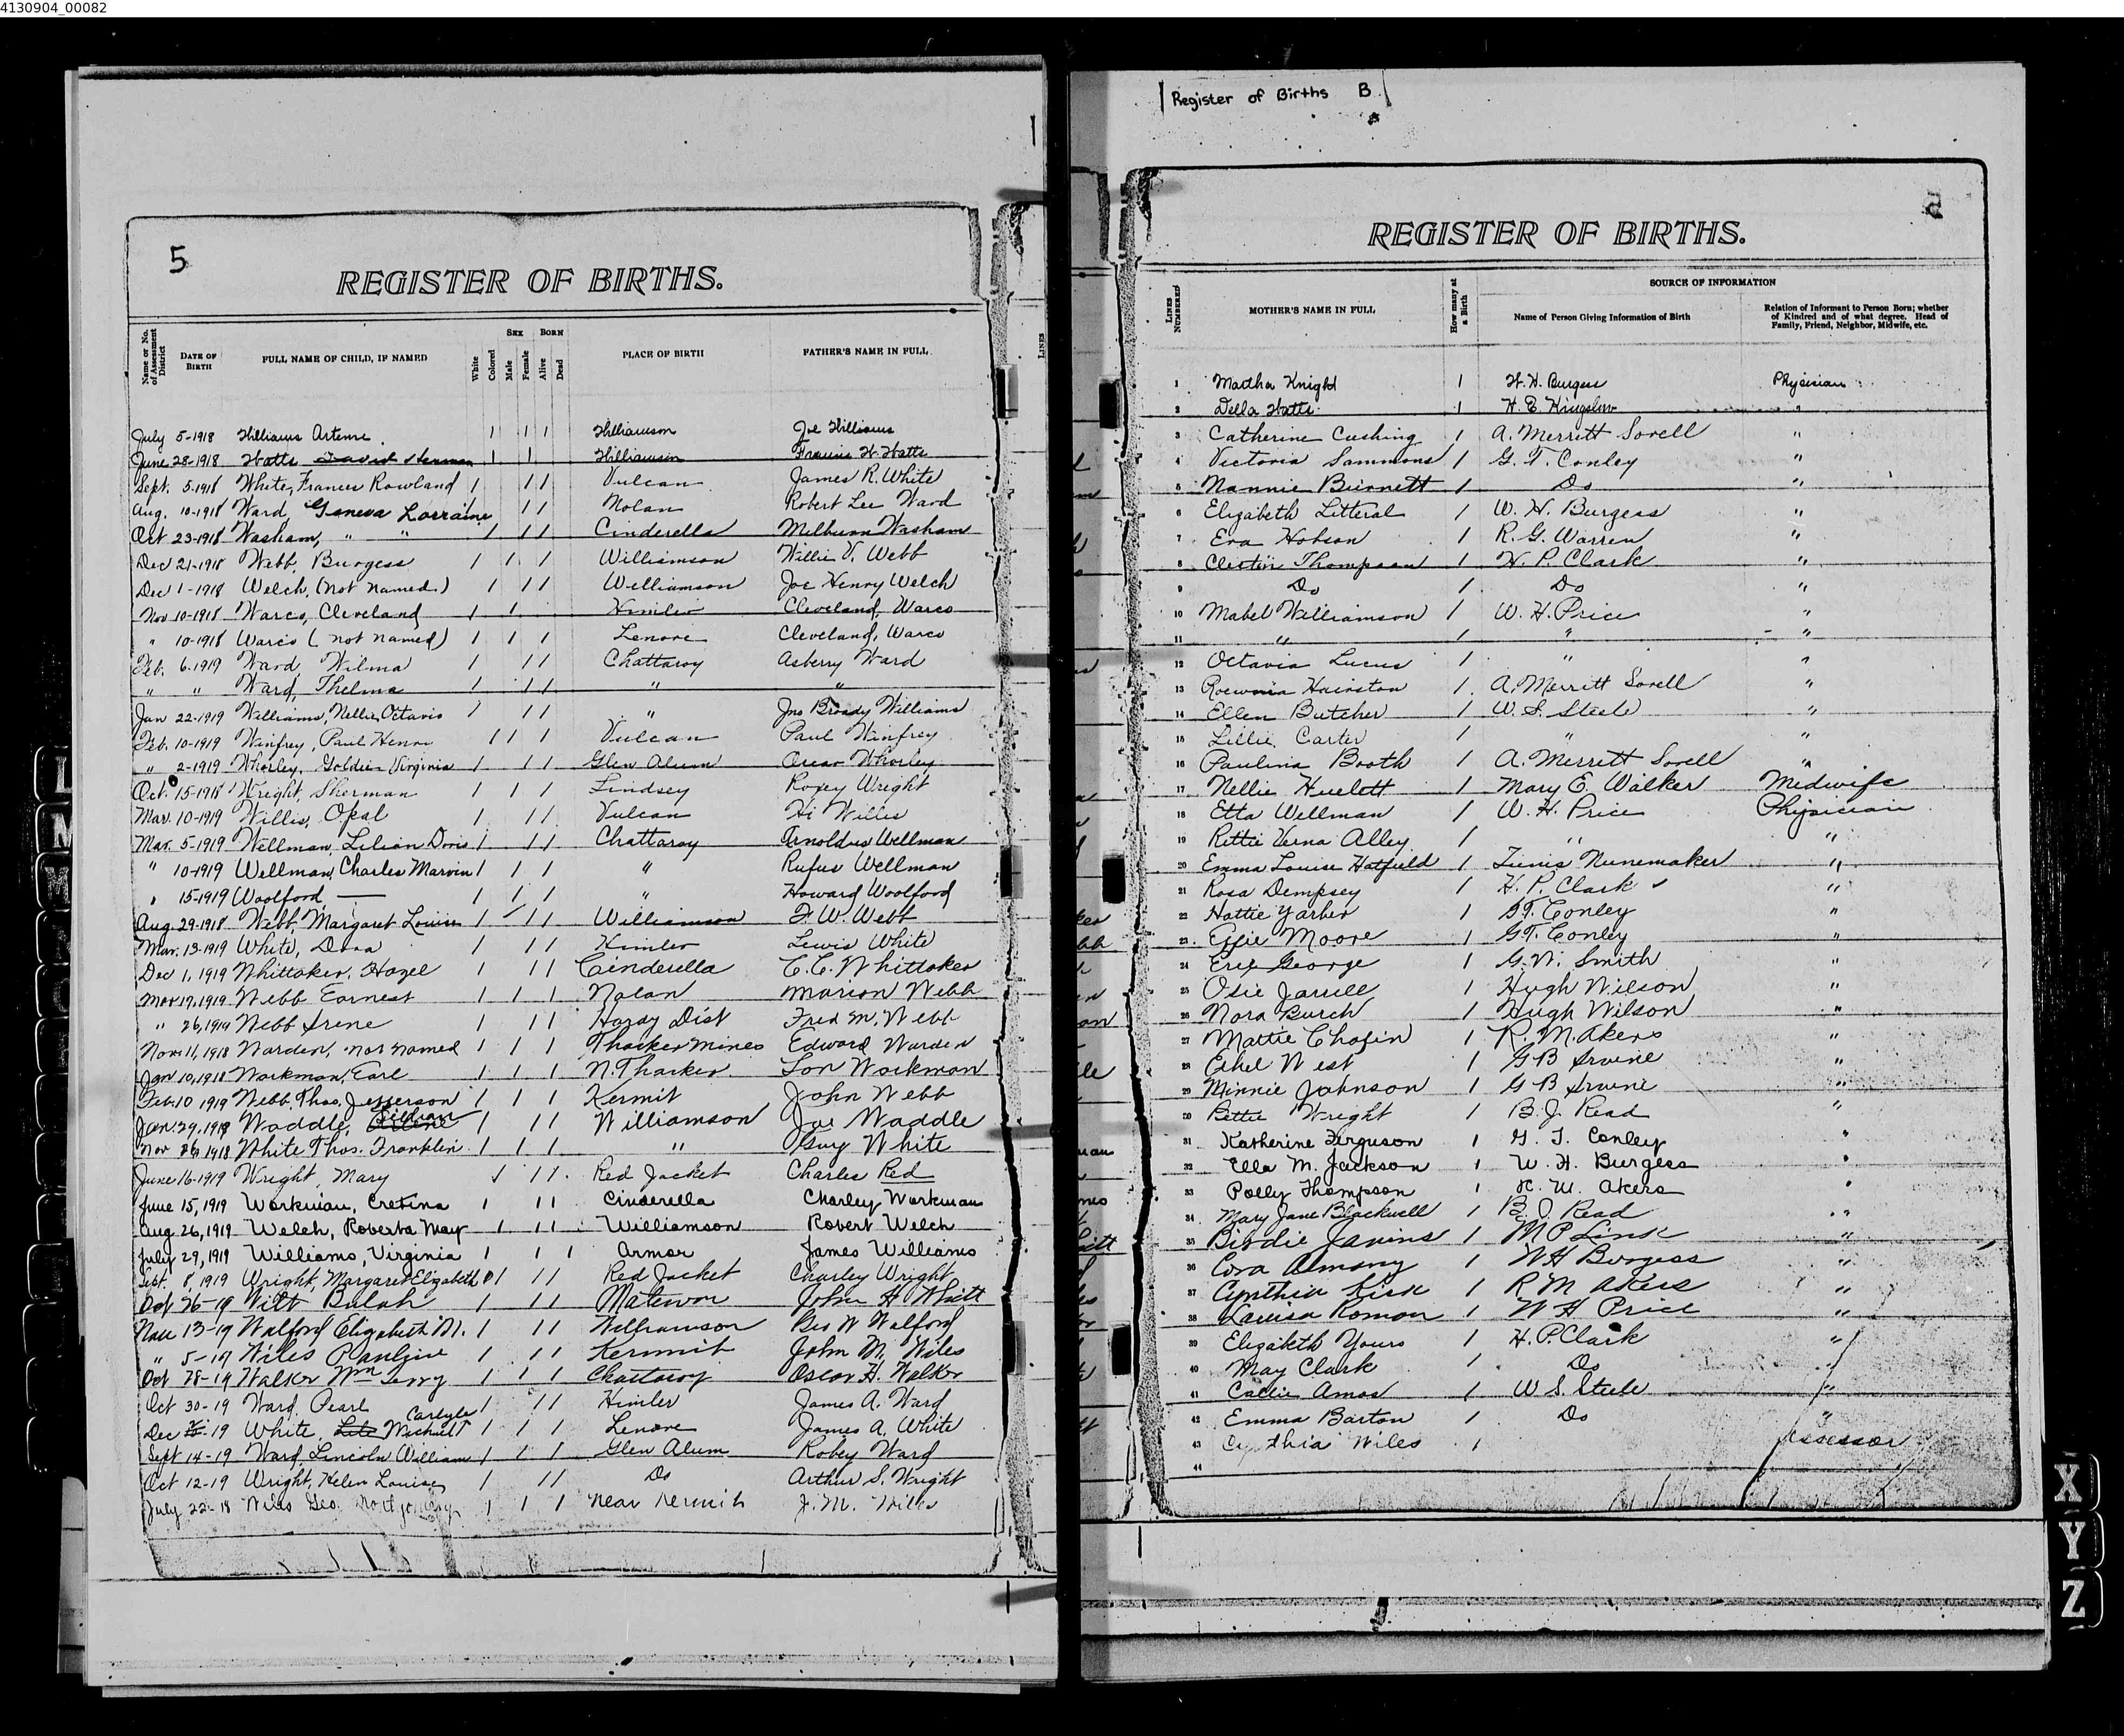 4130904_00082
5
REGISTER OF BIRTHS.
Name or No. of Assessment District
DATE OF BIRTH
FULL NAME OF CHILD, IF NAMED
White
Colored
SEX
Male
Female
BORN
Alive
Dead
PLACE OF BIRTH
FATHER'S NAME IN FULL
July 5-1918 Williams Artenie 1 1 1 Williamson Joe Williams
June 28-1918 Watts David Herman 1 1 Williamson Francis W. Watts
Sept. 5-1918 White, Frances Rowland 1 1 1 Vulcan James R. White
Aug. 10-1918 Ward Geneva Lorraine 1 1 1 Nolan Robert Lee Ward
Oct 23-1918 Washam, " " 1 1 1 Cinderella Milburn Washam
Dec 21-1918 Webb, Burgess 1 1 1 Williamson Willie V. Webb
Dec 1-1918 Welch, (not named) 1 1 1 Williamson Joe Henry Welch
Nov 10-1918 Warco, Cleveland 1 1 Himler Cleveland, Warco
" 10-1918 Warco (not named) 1 1 1 Lenore Cleveland, Warco
Feb. 6-1919 Ward, Wilma 1 1 1 Chattaroy Asberry Ward
" " Ward, Thelma 1 1 1 " "
Jan 22-1919 Williams, Nellie Octavis 1 1 1 " Jno Broady Williams
Feb. 10-1919 Winfrey, Paul Henry 1 1 1 Vulcan Paul Winfrey
" 2-1919 Whorley, Goldie Virginia 1 1 1 Glen Alum Oscar Whorley
Oct. 15-1918 Wright, Sherman 1 1 1 Lindsey Roxey Wright
Mar. 10-1919 Willis, Opal 1 1 1 Vulcan Hi Willis
Mar. 5-1919 Wellman, Lilian Doris 1 1 1 Chattaroy Arnoldus Wellman
" 10-1919 Wellman, Charles Marvin 1 1 1 " Rufus Wellman
" 15-1919 Woolford, — 1 1 1 " Howard Woolford
Aug 29-1918 Webb, Margaret Louise 1 1 1 Williamson F. W. Webb
Mar. 13-1919 White, Dora 1 1 1 Himler Lewis White
Dec 1, 1919 Whittaker, Hazel 1 1 1 Cinderella C. C. Whittaker
Mar 17, 1919 Webb Earnest 1 1 1 Nolan Marion Webb
" 26, 1919 Webb Irene 1 1 1 Hardy Dist Fred M. Webb
Nov 11, 1918 Warden, not named 1 1 1 Thacker Mines Edward Warden
Jan 10, 1918 Workman, Earl 1 1 1 N. Thacker Lon Workman
Feb. 10 1919 Webb, Thos. Jefferson 1 1 1 Kermit John Webb
Jan. 29, 1919 Waddle, Lillian 1 1 1 Williamson Joe Waddle
Nov 26, 1918 White Thos. Franklin 1 1 1 " Guy White
June 16-1919 Wright, Mary 1 1 1 Red Jacket Charles Red
June 15, 1919 Workman, Cretina 1 1 1 Cinderella Charley Workman
Aug 26, 1919 Welch, Roberta May 1 1 1 Williamson Robert Welch
July 29, 1919 Williams, Virginia 1 1 1 Armor James Williams
Sept. 8, 1919 Wright, Margaret Elizabeth 1 1 1 Red Jacket Charley Wright
Oct 26-19 Wilt Bulah 1 1 1 Matewan John H Whitt
Nov 13-19 Walford Elizabeth M. 1 1 1 Williamson Geo W Walford
" 5-19 Wiles Pauline 1 1 1 Kermit John M. Wiles
Oct 28-19 Walker Wm Terry 1 1 1 Chattaroy Oscar H. Walker
Oct 30-19 Ward, Pearl 1 1 1 Himler James A. Ward
Dec 19 White, Carlyle Michael 1 1 1 Lenore James A. White
Sept 14-19 Ward, Lincoln William 1 1 1 Glen Alum Robey Ward
Oct 12-19 Wright, Helen Louise 1 1 1 Do Arthur S. Wright
July 22-18 Wiles Geo. 1 1 1 Near Kermit J. M. Wiles
Register of Births B
REGISTER OF BIRTHS.
LINES NUMBERED
MOTHER'S NAME IN FULL
How many at a Birth
SOURCE OF INFORMATION
Name of Person Giving Information of Birth
Relation of Informant to Person Born; whether of Kindred and of what degree. Head of Family, Friend, Neighbor, Midwife, etc.
1 Martha Knight 1 W. H. Burgess Physician
2 Della Watts 1 H. E. Kingslow "
3 Catherine Cushing 1 A. Merritt Sovell "
4 Victoria Sammons 1 G. T. Conley "
5 Nannie Burnett 1 Do "
6 Elizabeth Litteral 1 W. H. Burgess "
7 Eva Hobson 1 R. G. Warren "
8 Thompson 1 H. P. Clark "
9 Do 1 Do "
10 Mabel Williamson 1 W. H. Price "
11 " 1 " "
12 Octavia Lucus 1 " "
13 Hairston 1 A. Merritt Sovell "
14 Ellen Butcher 1 W. S. Steele "
15 Lillie Carter 1 " "
16 Paulina Booth 1 A. Merritt Sovell "
17 Nellie Huelett 1 Mary E. Walker Midwife
18 Etta Wellman 1 W. H. Price Physician
19 Rettie Verna Alley 1 " "
20 Emma Louise Hatfield 1 Tunis Nunemaker "
21 Rosa Dempsey 1 H. P. Clark "
22 Hattie Yarber 1 G.T. Conley "
23 Effie Moore 1 G.T. Conley "
24 George 1 G. W. Smith "
25 Osie Jarrell 1 Hugh Wilson "
26 Nora Burch 1 Hugh Wilson "
27 Mattie Chafin 1 R. M. Akers "
28 Ethel West 1 G B Irvine "
29 Minnie Johnson 1 G B Irvine "
30 Bettie Wright 1 B. J. Read "
31 Katherine Ferguson 1 G. T. Conley "
32 Ella M. Jackson 1 W. H. Burgess "
33 Polly Thompson 1 R. M. Akers "
34 Mary Jane Blackwell 1 B. J. Read "
35 Birdie Javins 1 M P Link "
36 Cora Almany 1 W H Burgess "
37 Cynthia Sisk 1 R M Akers "
38 Louisa Roman 1 W H Price "
39 Elizabeth Yours 1 H. P. Clark "
40 May Clark 1 Do "
41 Callie Amos 1 W S. Steele "
42 Emma Barton 1 Do "
43 Cynthia Wiles 1 Assessor
44
L
M
X
Y
Z